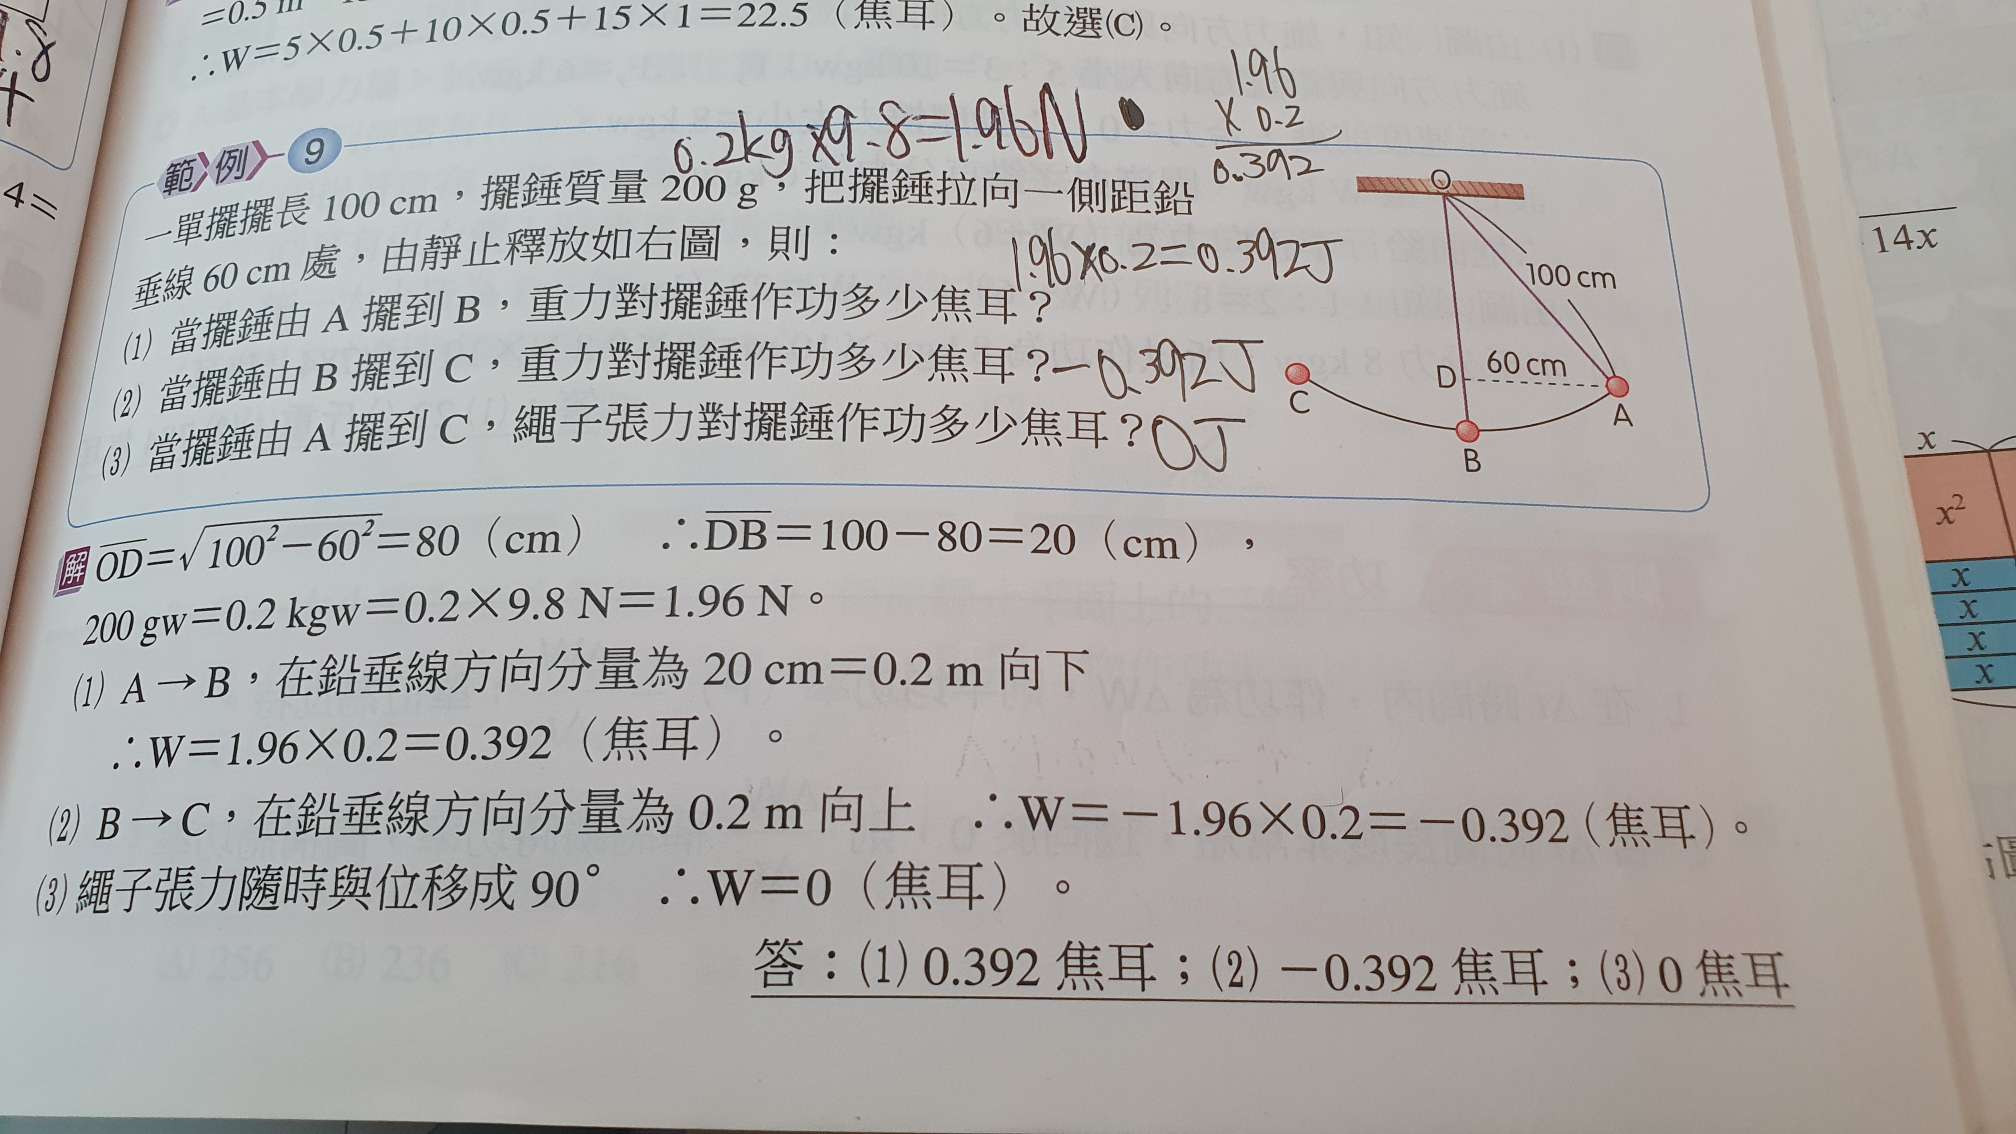 =0.5 m
∴W=5×0.5+10×0.5+15×1=22.5（焦耳）。故選(C)。
1.96
× 0.2
0.392
0.2kg×9.8=1.96N
範例 9
一單擺擺長 100 cm，擺錘質量 200 g，把擺錘拉向一側距鉛
垂線 60 cm 處，由靜止釋放如右圖，則：
1.96×0.2=0.392J
(1) 當擺錘由 A 擺到 B，重力對擺錘作功多少焦耳？
(2) 當擺錘由 B 擺到 C，重力對擺錘作功多少焦耳？-0.392J
(3) 當擺錘由 A 擺到 C，繩子張力對擺錘作功多少焦耳？0J
O
100 cm
D 60 cm
C
A
B
解 OD=√100²−60²=80（cm） ∴DB=100−80=20（cm），
200 gw=0.2 kgw=0.2×9.8 N=1.96 N。
(1) A→B，在鉛垂線方向分量為 20 cm=0.2 m 向下
∴W=1.96×0.2=0.392（焦耳）。
(2) B→C，在鉛垂線方向分量為 0.2 m 向上 ∴W=−1.96×0.2=−0.392（焦耳）。
(3) 繩子張力隨時與位移成 90° ∴W=0（焦耳）。
答：(1) 0.392 焦耳；(2) −0.392 焦耳；(3) 0 焦耳
4=
14x
x
x²
x
x
x
x